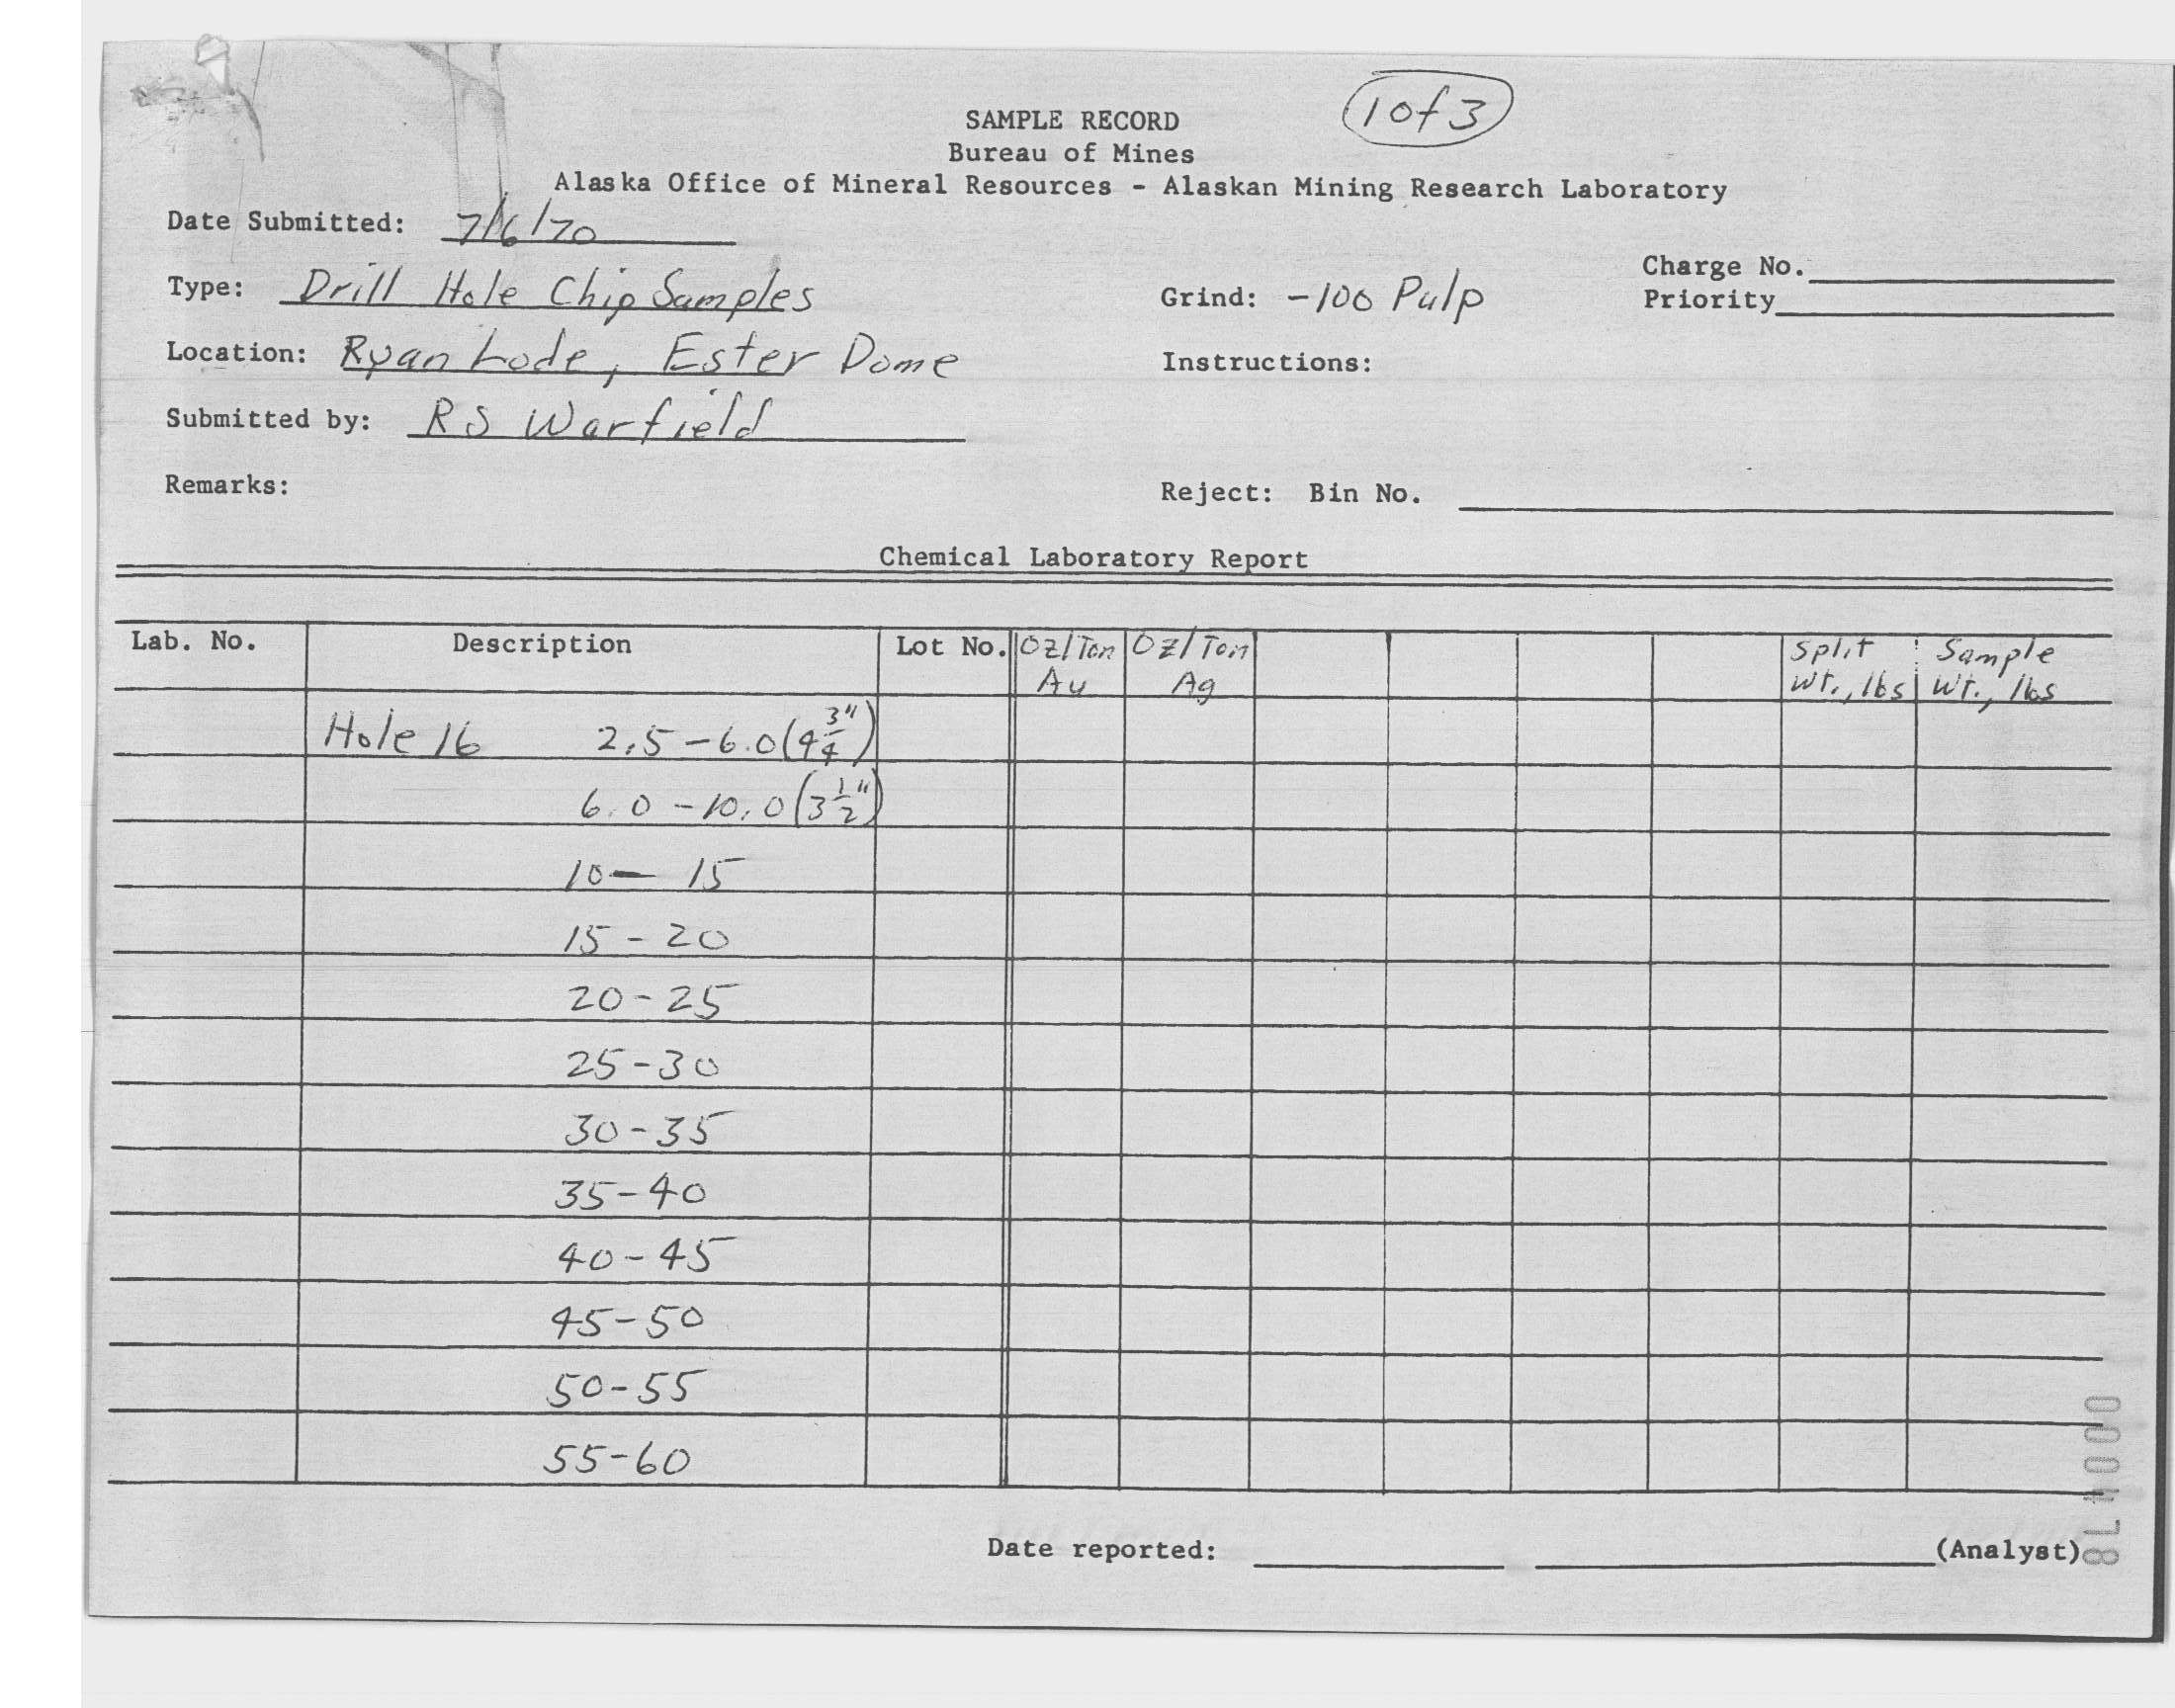 1 of 3
SAMPLE RECORD
Bureau of Mines
Alaska Office of Mineral Resources - Alaskan Mining Research Laboratory
Date Submitted: 7/6/70
Charge No.
Type: Drill Hole Chip Samples Grind: -100 Pulp Priority
Location: Ryan Lode, Ester Dome Instructions:
Submitted by: RS Warfield
Remarks: Reject: Bin No.
Chemical Laboratory Report
Lab. No. Description Lot No. Oz/Ton Au Oz/Ton Ag Split Wt., lbs Sample Wt., lbs
Hole 16 2.5-6.0 (4 3/4")
6.0-10.0 (3 1/2")
10-15
15-20
20-25
25-30
30-35
35-40
40-45
45-50
50-55
55-60
Date reported: (Analyst)
000478